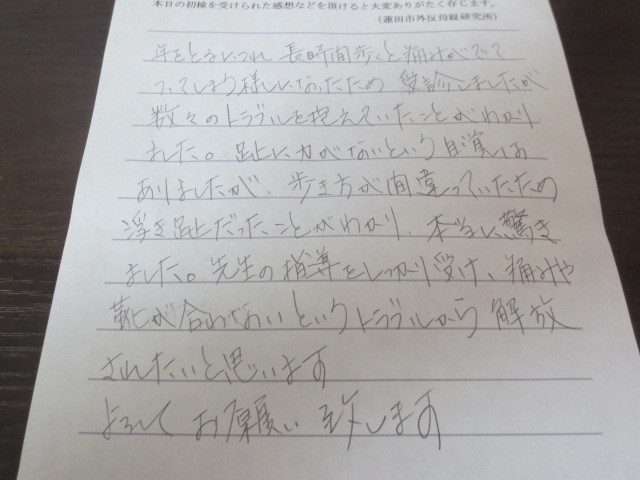 本日の初検を受けられた感想などを頂けると大変ありがたく存じます。
(蓮田市外反母趾研究所)
年をとるにつれ 長時間歩くと痛みがでて
つってしまう様になったため 受診しましたが
数々のトラブルを抱えていたことがわかり
ました。足に力がないという自覚は
ありましたが、歩き方が間違っていたため
浮き趾だったことがわかり、本当に驚き
ました。先生の指導をしっかり受け、痛みや
靴が合わないというトラブルから解放
されたいと思います
よろしくお願い致します